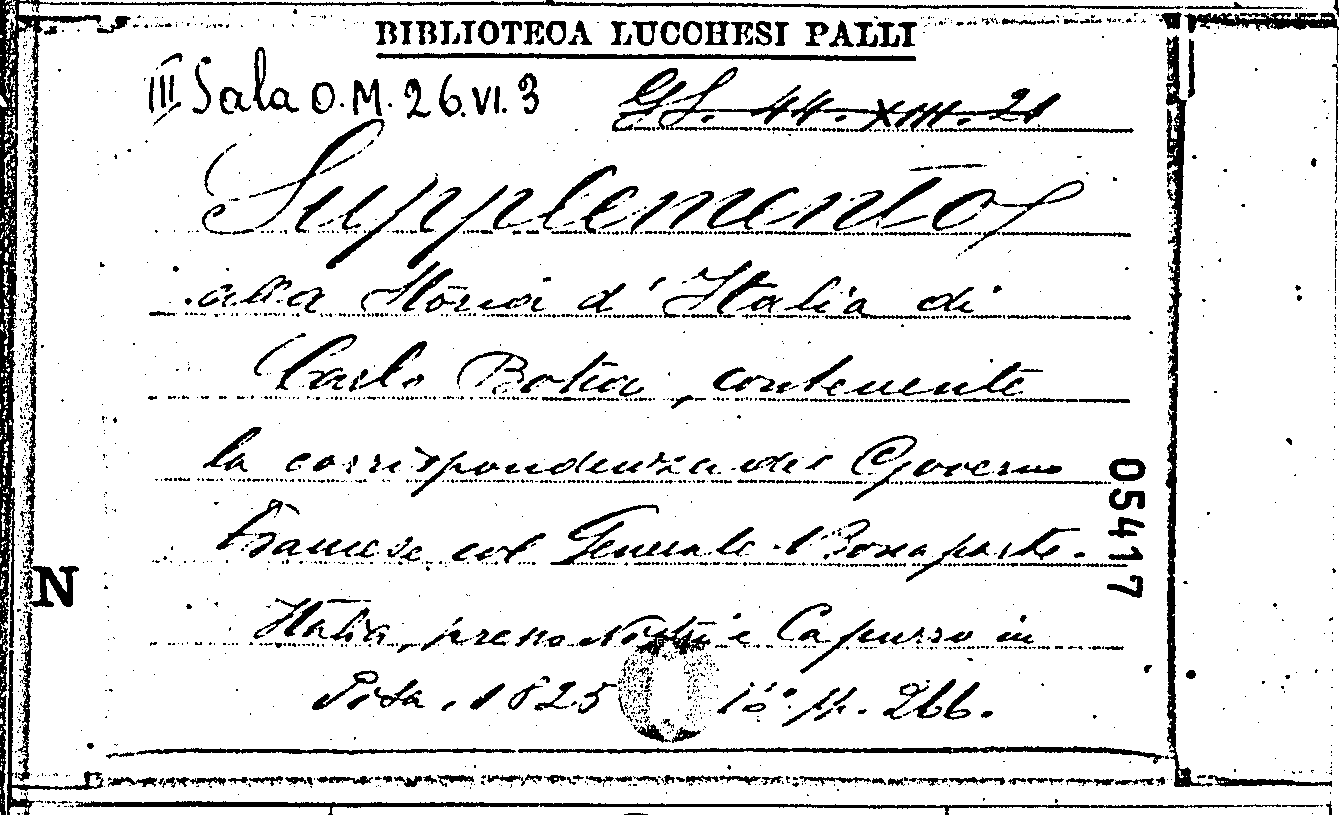 BIBLIOTECA LUCCHESI PALLI
III Sala O.M. 26.VI.3
GS. 44. XIII. 21
Supplemento
alla Storia d'Italia di
Carlo Botta, contenente
la corrispondenza del Governo
Francese col Generale Bonaparte.
Italia, presso Nistri e Capurso in
Pisa, 1825 16° pp. 266.
05417
N